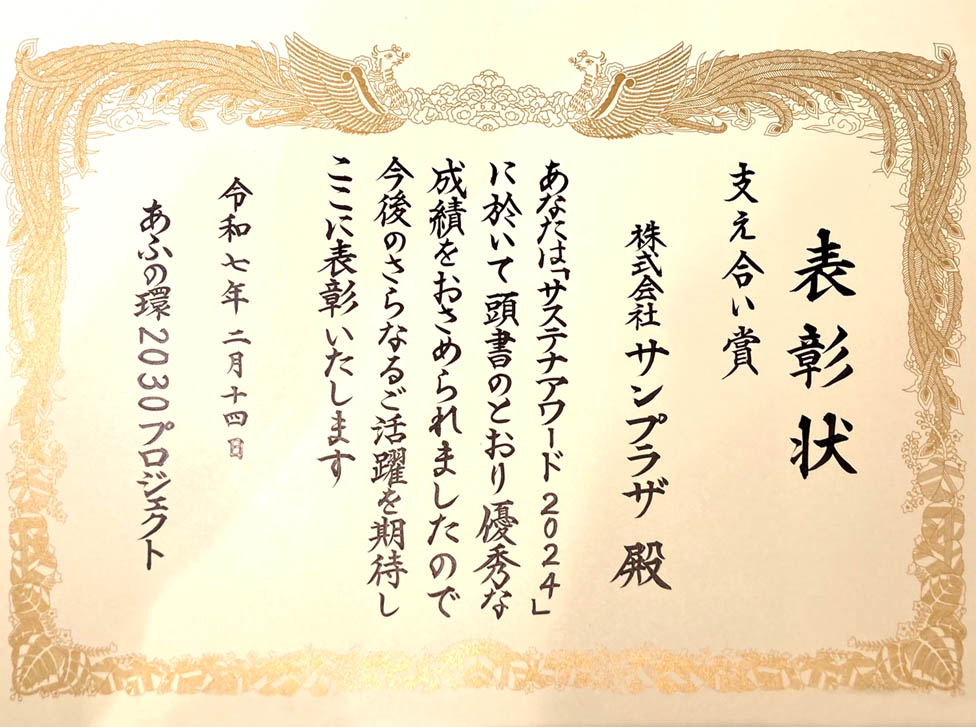 表彰状
支え合い賞
株式会社 サンプラザ 殿
あなたは「サステナアワード2024」
に於いて頭書のとおり優秀な
成績をおさめられましたので
今後のさらなるご活躍を期待し
ここに表彰いたします
令和七年二月十四日
あふの環2030プロジェクト